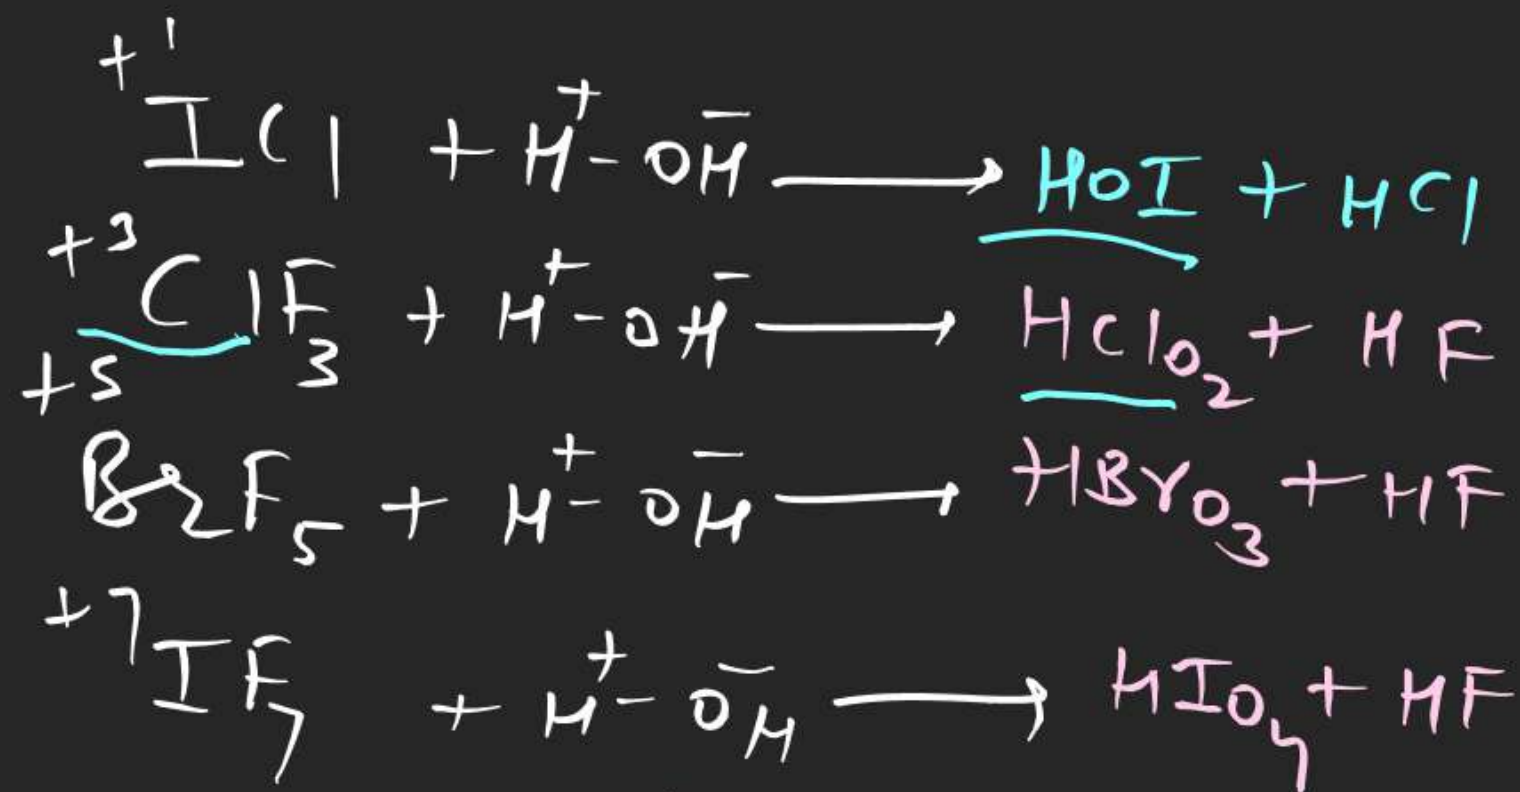 +1 ICl + H⁺-OH⁻ ⟶ HOI + HCl
+3 ClF₃ + H⁺-OH⁻ ⟶ HClO₂ + HF
+5 BrF₅ + H⁺-OH⁻ ⟶ HBrO₃ + HF
+7 IF₇ + H⁺-OH⁻ ⟶ HIO₄ + HF